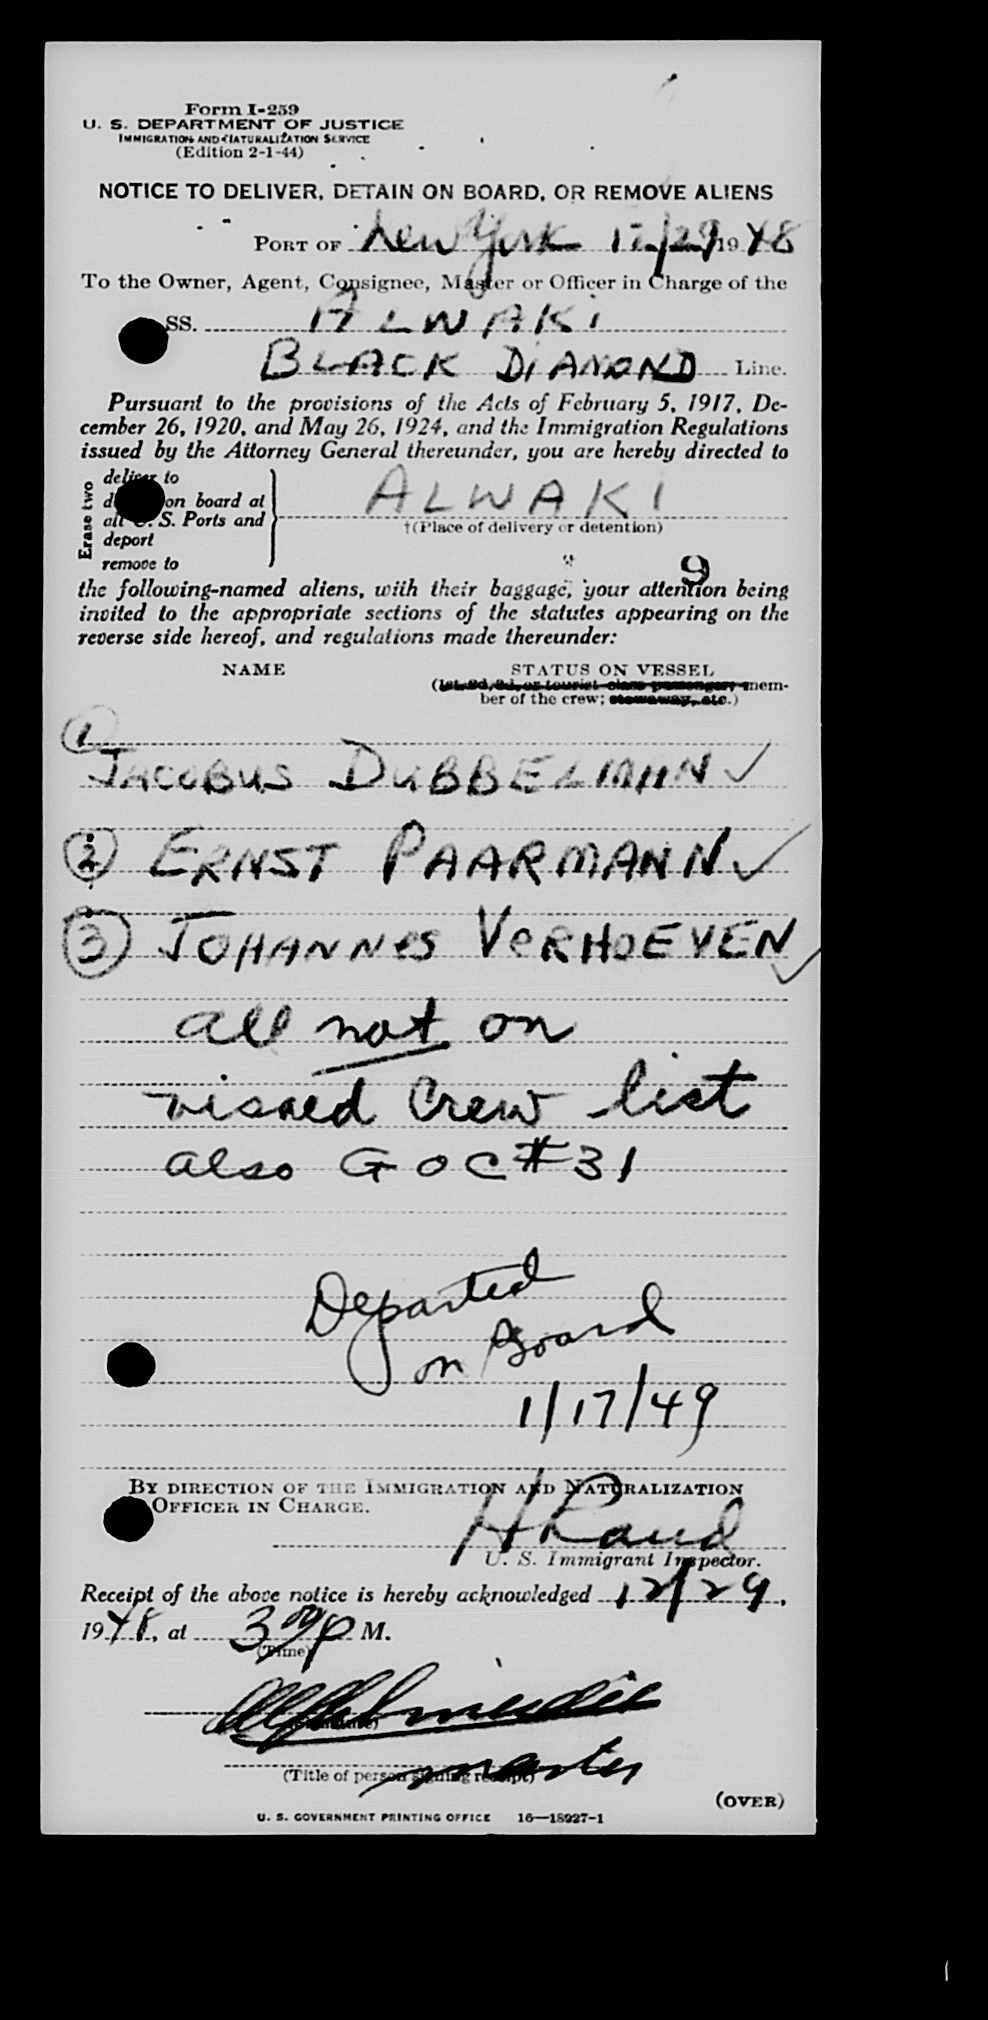 Form I-259
U. S. DEPARTMENT OF JUSTICE
IMMIGRATION AND NATURALIZATION SERVICE
(Edition 2-1-44)
NOTICE TO DELIVER, DETAIN ON BOARD, OR REMOVE ALIENS
PORT OF New York 12/29 1948
To the Owner, Agent, Consignee, Master or Officer in Charge of the
SS. ALWAKI
BLACK DIAMOND Line.
Pursuant to the provisions of the Acts of February 5, 1917, De-
cember 26, 1920, and May 26, 1924, and the Immigration Regulations
issued by the Attorney General thereunder, you are hereby directed to
Erase two
deliver to
on board at
all U. S. Ports and
deport
remove to
ALWAKI
†(Place of delivery or detention)
9
the following-named aliens, with their baggage, your attention being
invited to the appropriate sections of the statutes appearing on the
reverse side hereof, and regulations made thereunder:
NAME STATUS ON VESSEL
(1st, 2d, 3d, or tourist class passenger; mem-
ber of the crew; stowaway, etc.)
1
JACOBUS DUBBELMAN ✓
2 ERNST PAARMANN ✓
3 JOHANNES VERHOEVEN ✓
all not on
visaed Crew list
also G O C # 31
Departed
on Board
1/17/49
BY DIRECTION OF THE IMMIGRATION AND NATURALIZATION
OFFICER IN CHARGE.
H Raud
U. S. Immigrant Inspector.
Receipt of the above notice is hereby acknowledged 12/29,
1948, at 3 P M.
(Time)
(Signature)
master
(Title of person signing receipt)
(OVER)
U. S. GOVERNMENT PRINTING OFFICE 16—18927-1